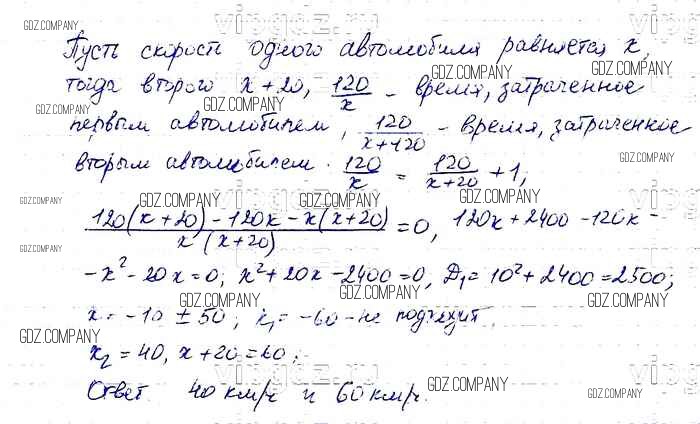 Пусть скорость одного автомобиля равняется x,
тогда второго x+20, 120/x - время, затраченное
первым автомобилем, 120/(x+120) - время, затраченное
вторым автомобилем. 120/x = 120/(x+20) + 1,
(120(x+20) - 120x - x(x+20))/(x(x+20)) = 0, 120x + 2400 - 120x -
- x² - 20x = 0; x² + 20x - 2400 = 0, D₁ = 10² + 2400 = 2500;
x = -10 ± 50; x₁ = -60 - не подходит,
x₂ = 40, x + 20 = 60;
Ответ 40 км/ч и 60 км/ч.
GDZ.COMPANY